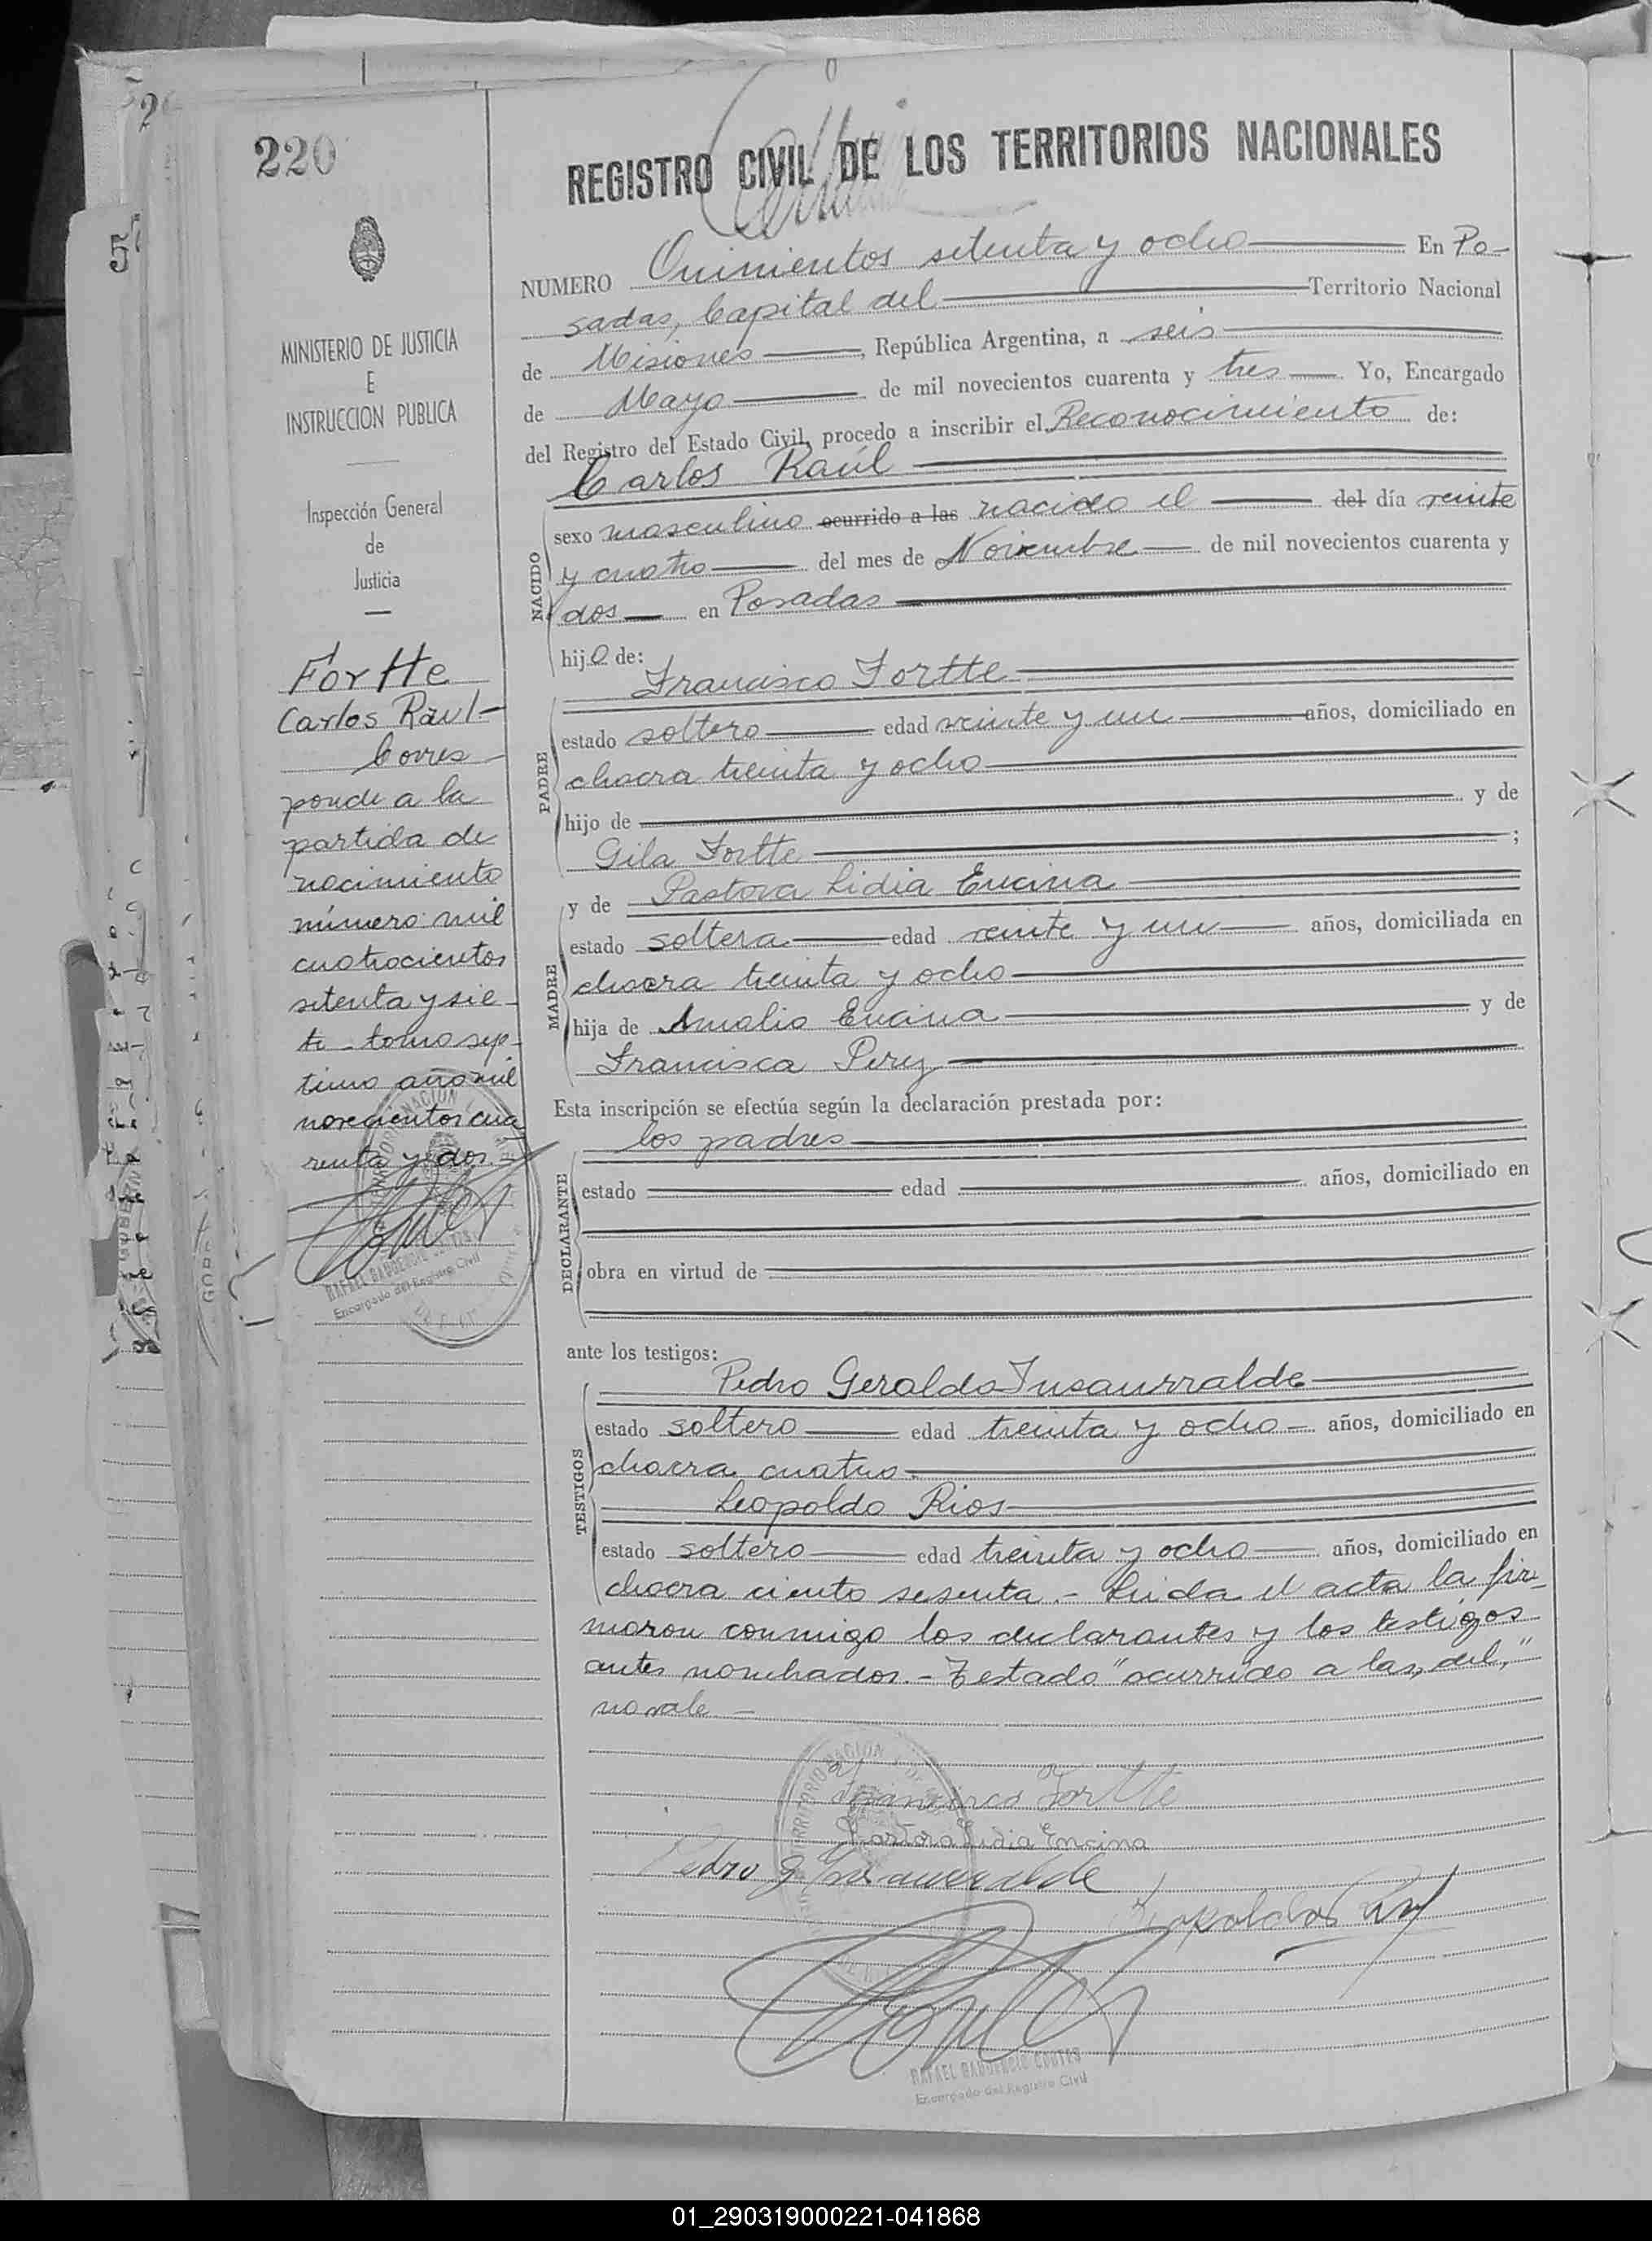 220
REGISTRO CIVIL DE LOS TERRITORIOS NACIONALES
NUMERO Quinientos setenta y ocho En Po-
sadas, Capital del Territorio Nacional
de Misiones, República Argentina, a seis
de Mayo de mil novecientos cuarenta y tres Yo, Encargado
del Registro del Estado Civil, procedo a inscribir el Reconocimiento de:
Carlos Raúl
NACIDO
sexo masculino ocurrido a las nacido el del día veinte
y cuatro del mes de Noviembre de mil novecientos cuarenta y
dos en Posadas
hijo de:
Francisco Fortte
PADRE
estado soltero edad veinte y un años, domiciliado en
chacra treinta y ocho
hijo de y de
Gila Fortte ;
y de Pastora Lidia Encina
MADRE
estado soltera edad veinte y un años, domiciliada en
chacra treinta y ocho
hija de Amalio Encina y de
Francisca Perez
Esta inscripción se efectúa según la declaración prestada por:
los padres
DECLARANTE
estado edad años, domiciliado en
obra en virtud de
ante los testigos:
Pedro Geraldo Insaurralde
TESTIGOS
estado soltero edad treinta y ocho años, domiciliado en
chacra cuatro.
Leopoldo Rios
estado soltero edad treinta y ocho años, domiciliado en
chacra ciento sesenta.- Leida el acta la fir-
maron conmigo los declarantes y los testigos
antes nombrados.- Testado "ocurrido a las, del,"
no vale -
Francisco Fortte
Pastora Lidia Encina
Pedro G Insaurralde
Leopoldo
RAFAEL GAUDENCIO CORTES
Encargado del Registro Civil
MINISTERIO DE JUSTICIA
E
INSTRUCCION PUBLICA
Inspección General
de
Justicia
Fortte
Carlos Raul-
Corres
ponde a la
partida de
nacimiento
número mil
cuatrocientos
setenta y sie-
te - tomo sep-
timo año mil
novecientos cua
renta y dos.-
RAFAEL GAUDENCIO CORTES
Encargado del Registro Civil
01_290319000221-041868